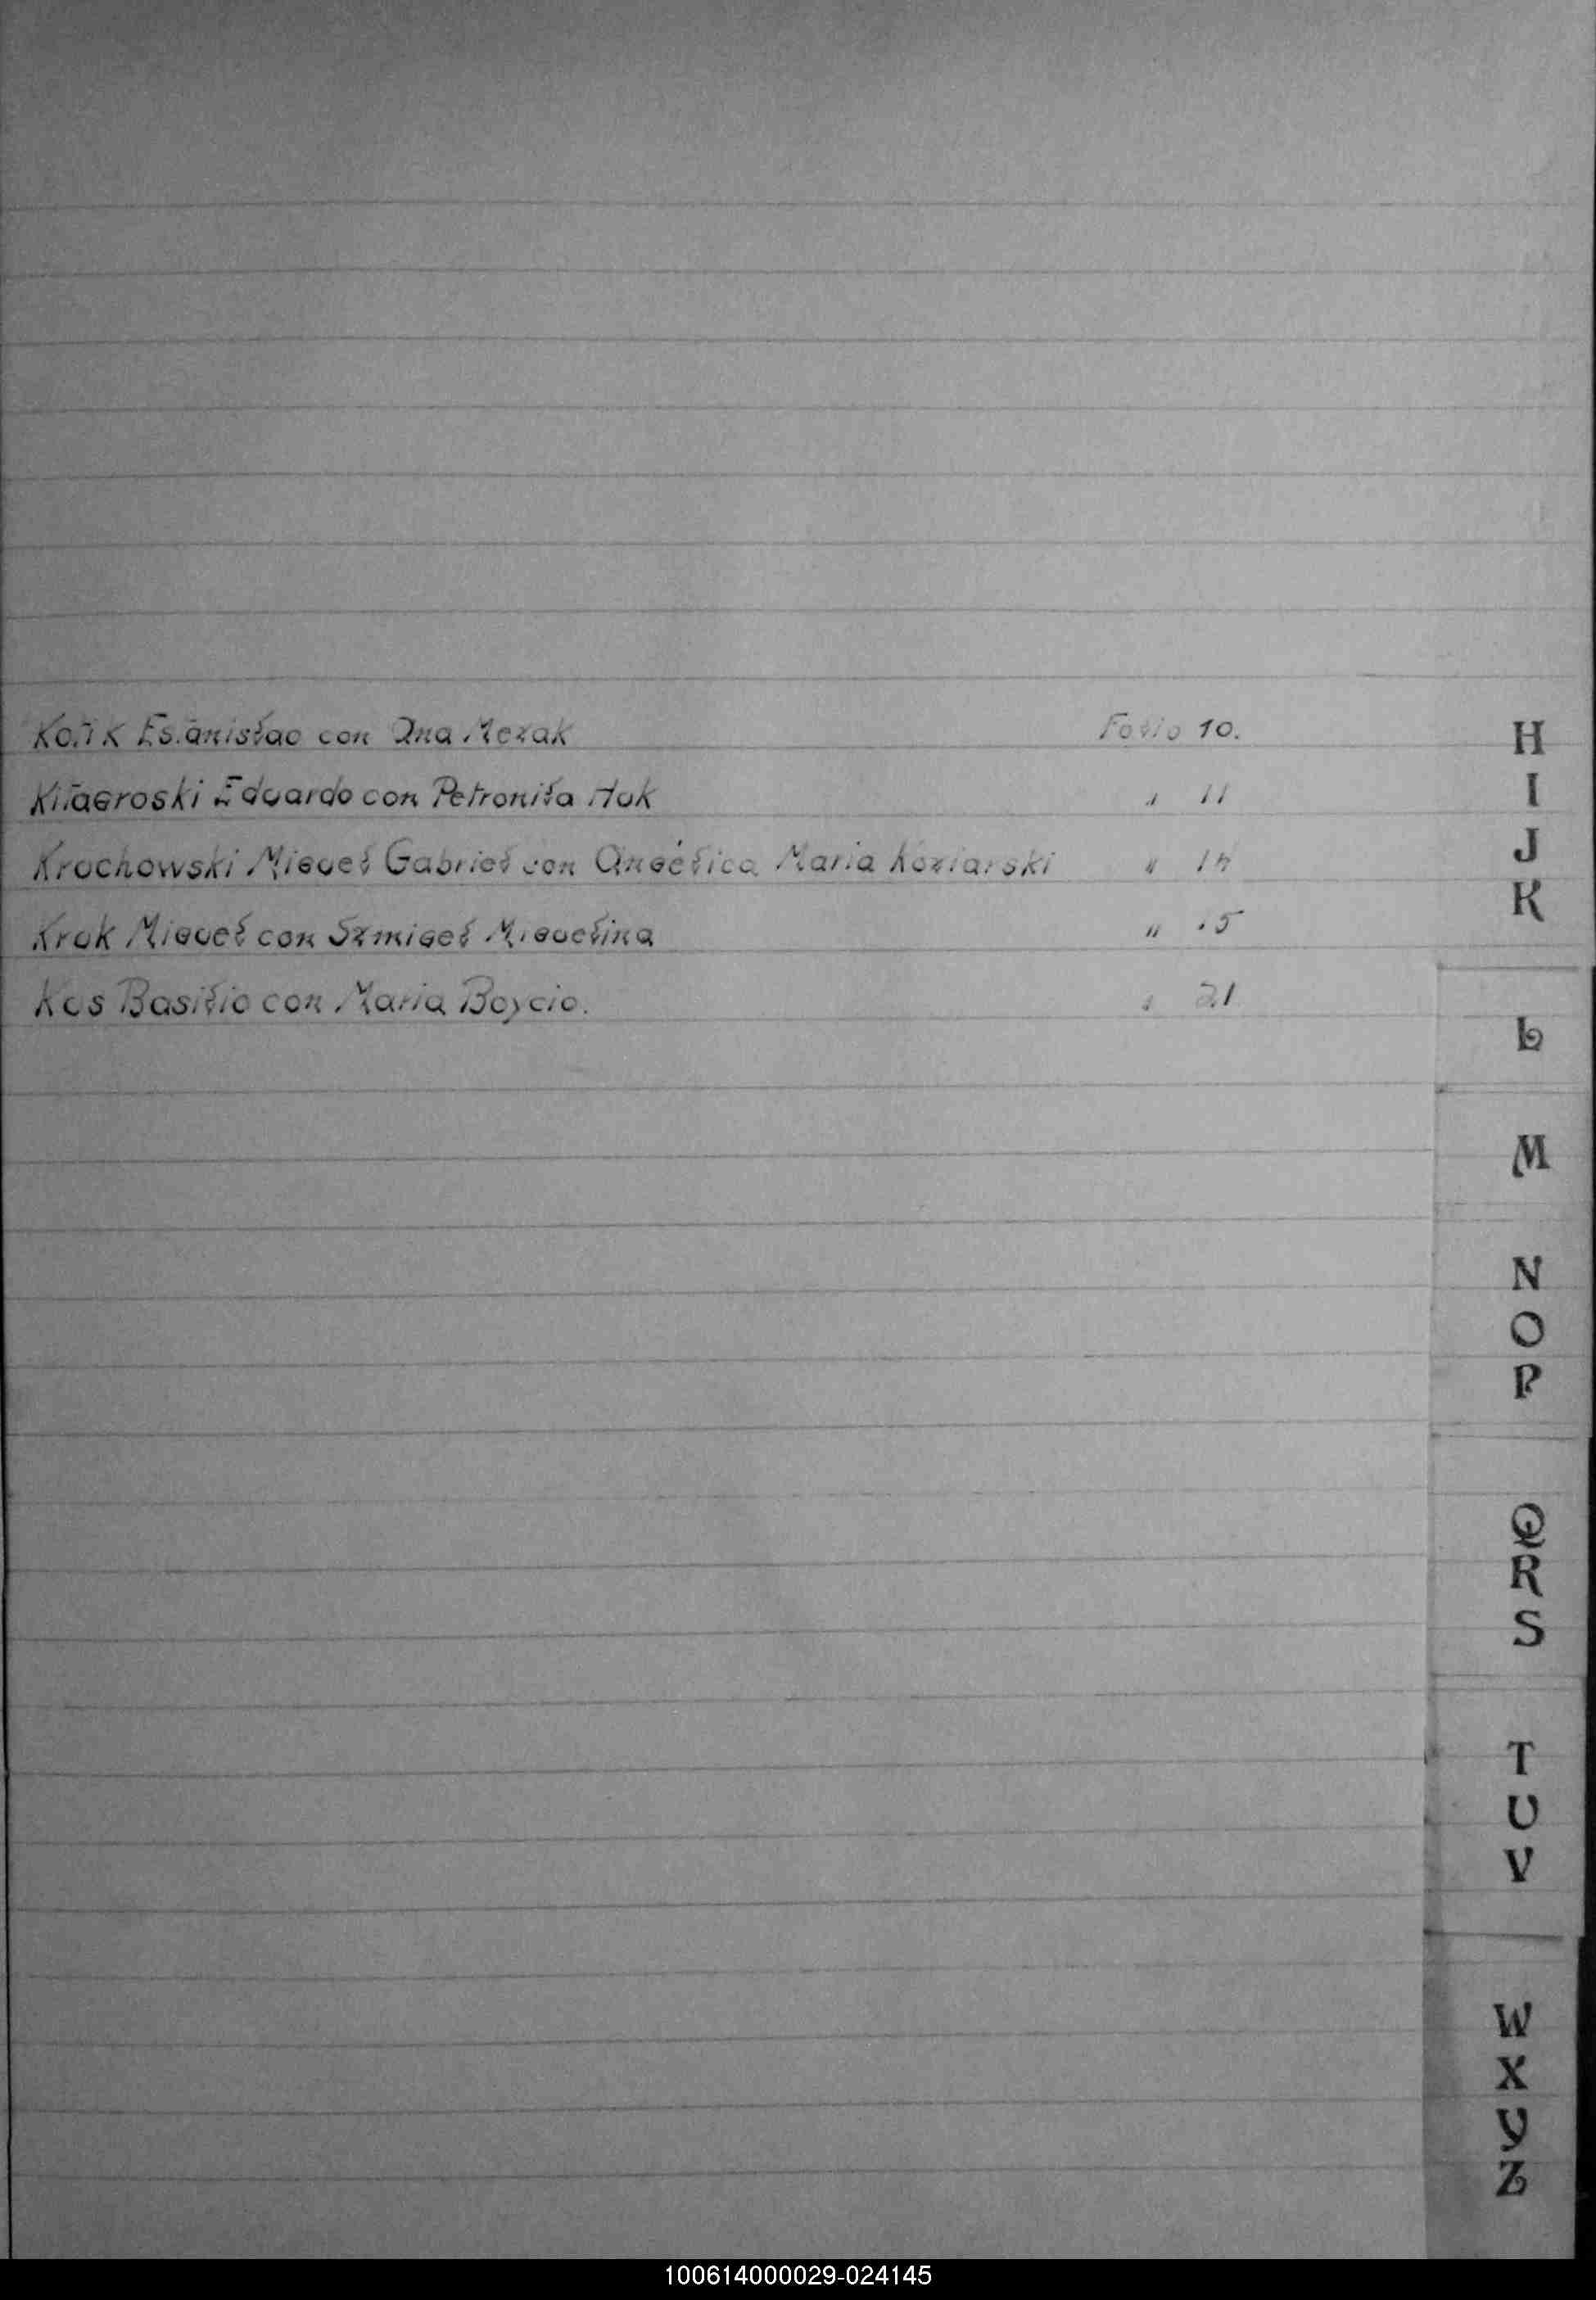 Estanislao con Ana Mezak Folio 10.
Eduardo con Petronila Huk " 11
Krochowski Miguel Gabriel con Angélica Maria Koziarski " 14
Kruk Miguel con Szmigel Miguelina " 15
Kus Basilio con Maria Boycio. " 21
H
I
J
K
L
M
N
O
P
Q
R
S
T
U
V
W
X
Y
Z
100614000029-024145